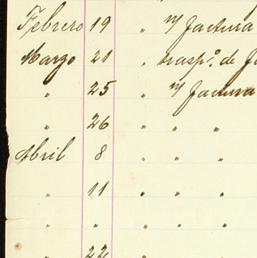 Febrero 19 " n/ factura
Marzo 21 " trasp.º de
" 25 " n/ factura
" 26 " " "
Abril 8 " " "
" 11 " " "
" " " " "
" 22